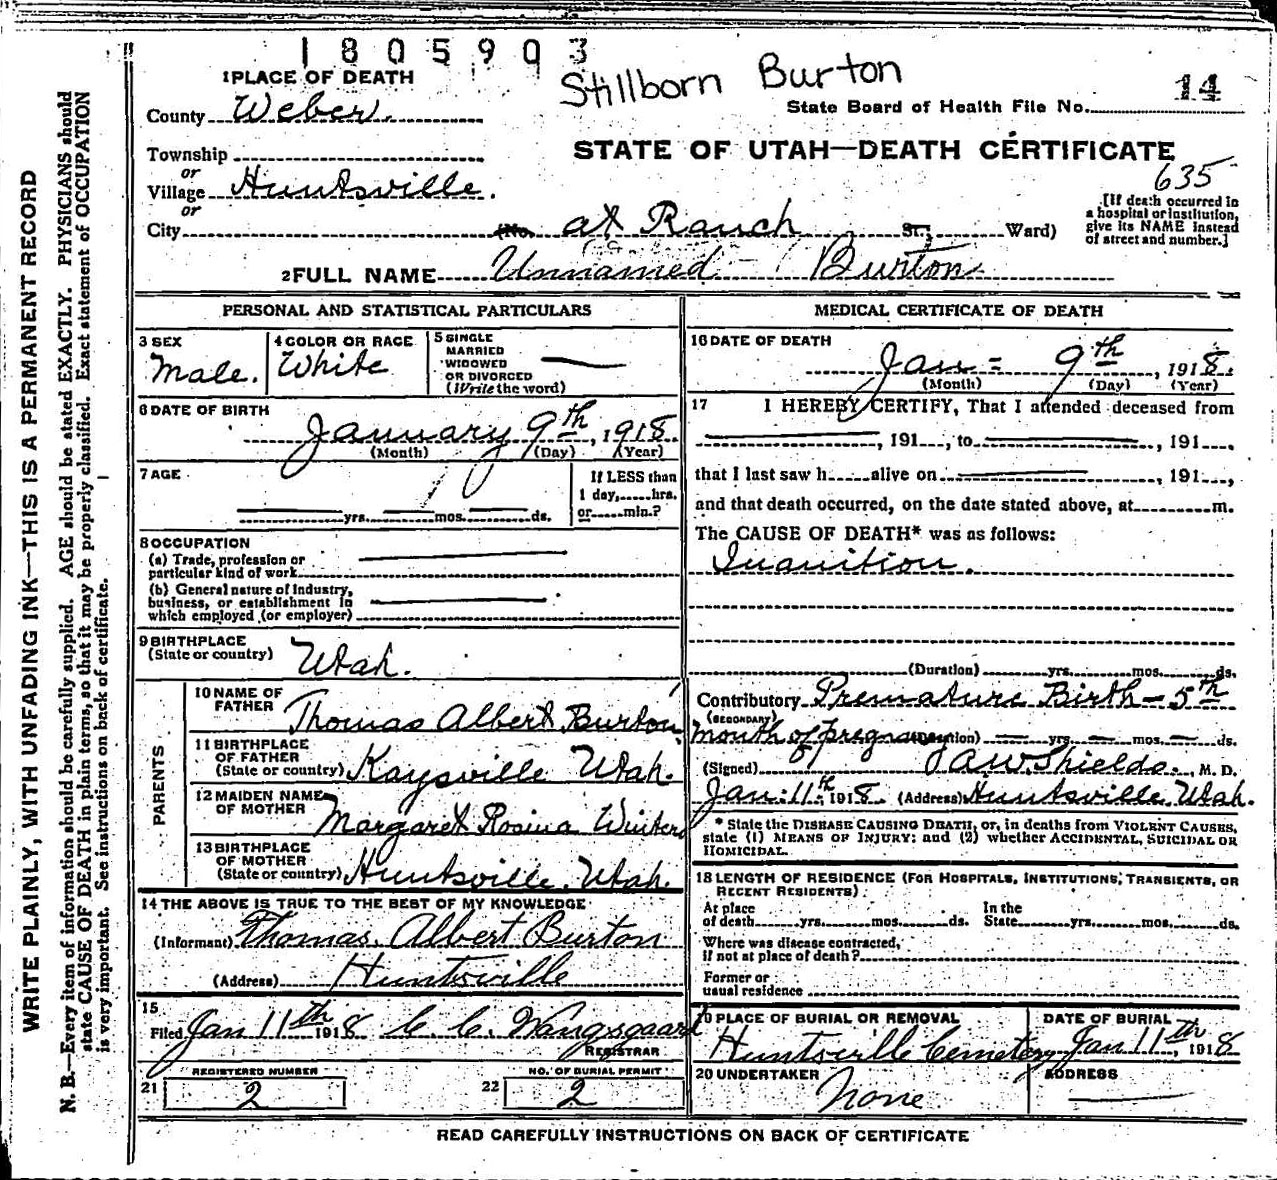 1805903
Stillborn Burton
1 PLACE OF DEATH
State Board of Health File No. 14
County Weber.
STATE OF UTAH—DEATH CERTIFICATE
Township
or
Village Huntsville.
or
635
[If death occurred in
a hospital or institution,
give its NAME instead
of street and number.]
City (No. at Ranch St.; Ward)
2 FULL NAME Unnamed Burton
PERSONAL AND STATISTICAL PARTICULARS
3 SEX
Male.
4 COLOR OR RACE
White
5 SINGLE
MARRIED
WIDOWED
OR DIVORCED
(Write the word)
6 DATE OF BIRTH
January 9th, 1918.
(Month) (Day) (Year)
7 AGE
yrs. mos. ds.
If LESS than
1 day, hrs.
or min.?
8 OCCUPATION
(a) Trade, profession or
particular kind of work
(b) General nature of industry,
business, or establishment in
which employed (or employer)
9 BIRTHPLACE
(State or country) Utah.
PARENTS
10 NAME OF
FATHER Thomas Albert Burton
11 BIRTHPLACE
OF FATHER
(State or country) Kaysville Utah.
12 MAIDEN NAME
OF MOTHER Margaret Rosina Winters
13 BIRTHPLACE
OF MOTHER
(State or country) Huntsville, Utah.
14 THE ABOVE IS TRUE TO THE BEST OF MY KNOWLEDGE
(Informant) Thomas Albert Burton
(Address) Huntsville
15
Filed Jan 11th 1918 C. C. Wangsgaard
REGISTRAR
REGISTERED NUMBER
21 2
NO. OF BURIAL PERMIT
22 2
MEDICAL CERTIFICATE OF DEATH
16 DATE OF DEATH
Jan= 9th, 1918.
(Month) (Day) (Year)
17 I HEREBY CERTIFY, That I attended deceased from
, 191 , to , 191 ,
that I last saw h alive on , 191 ,
and that death occurred, on the date stated above, at m.
The CAUSE OF DEATH* was as follows:
Inanition.
(Duration) yrs. mos. ds.
Contributory Premature Birth - 5th
(SECONDARY)
month of pregnancy (Duration) yrs. mos. ds.
(Signed) A W Shields., M. D.
Jan: 11th 1918. (Address) Huntsville, Utah.
* State the DISEASE CAUSING DEATH, or, in deaths from VIOLENT CAUSES,
state (1) MEANS OF INJURY; and (2) whether ACCIDENTAL, SUICIDAL OR
HOMICIDAL.
18 LENGTH OF RESIDENCE (FOR HOSPITALS, INSTITUTIONS, TRANSIENTS, OR
RECENT RESIDENTS)
At place
of death yrs. mos. ds.
In the
State yrs. mos. ds.
Where was disease contracted,
if not at place of death?
Former or
usual residence
19 PLACE OF BURIAL OR REMOVAL
Huntsville Cemetery
DATE OF BURIAL
Jan 11th, 1918
20 UNDERTAKER
None
ADDRESS
READ CAREFULLY INSTRUCTIONS ON BACK OF CERTIFICATE
WRITE PLAINLY, WITH UNFADING INK—THIS IS A PERMANENT RECORD
N. B.—Every item of information should be carefully supplied. AGE should be stated EXACTLY. PHYSICIANS should
state CAUSE OF DEATH in plain terms, so that it may be properly classified. Exact statement of OCCUPATION
is very important. See instructions on back of certificate.